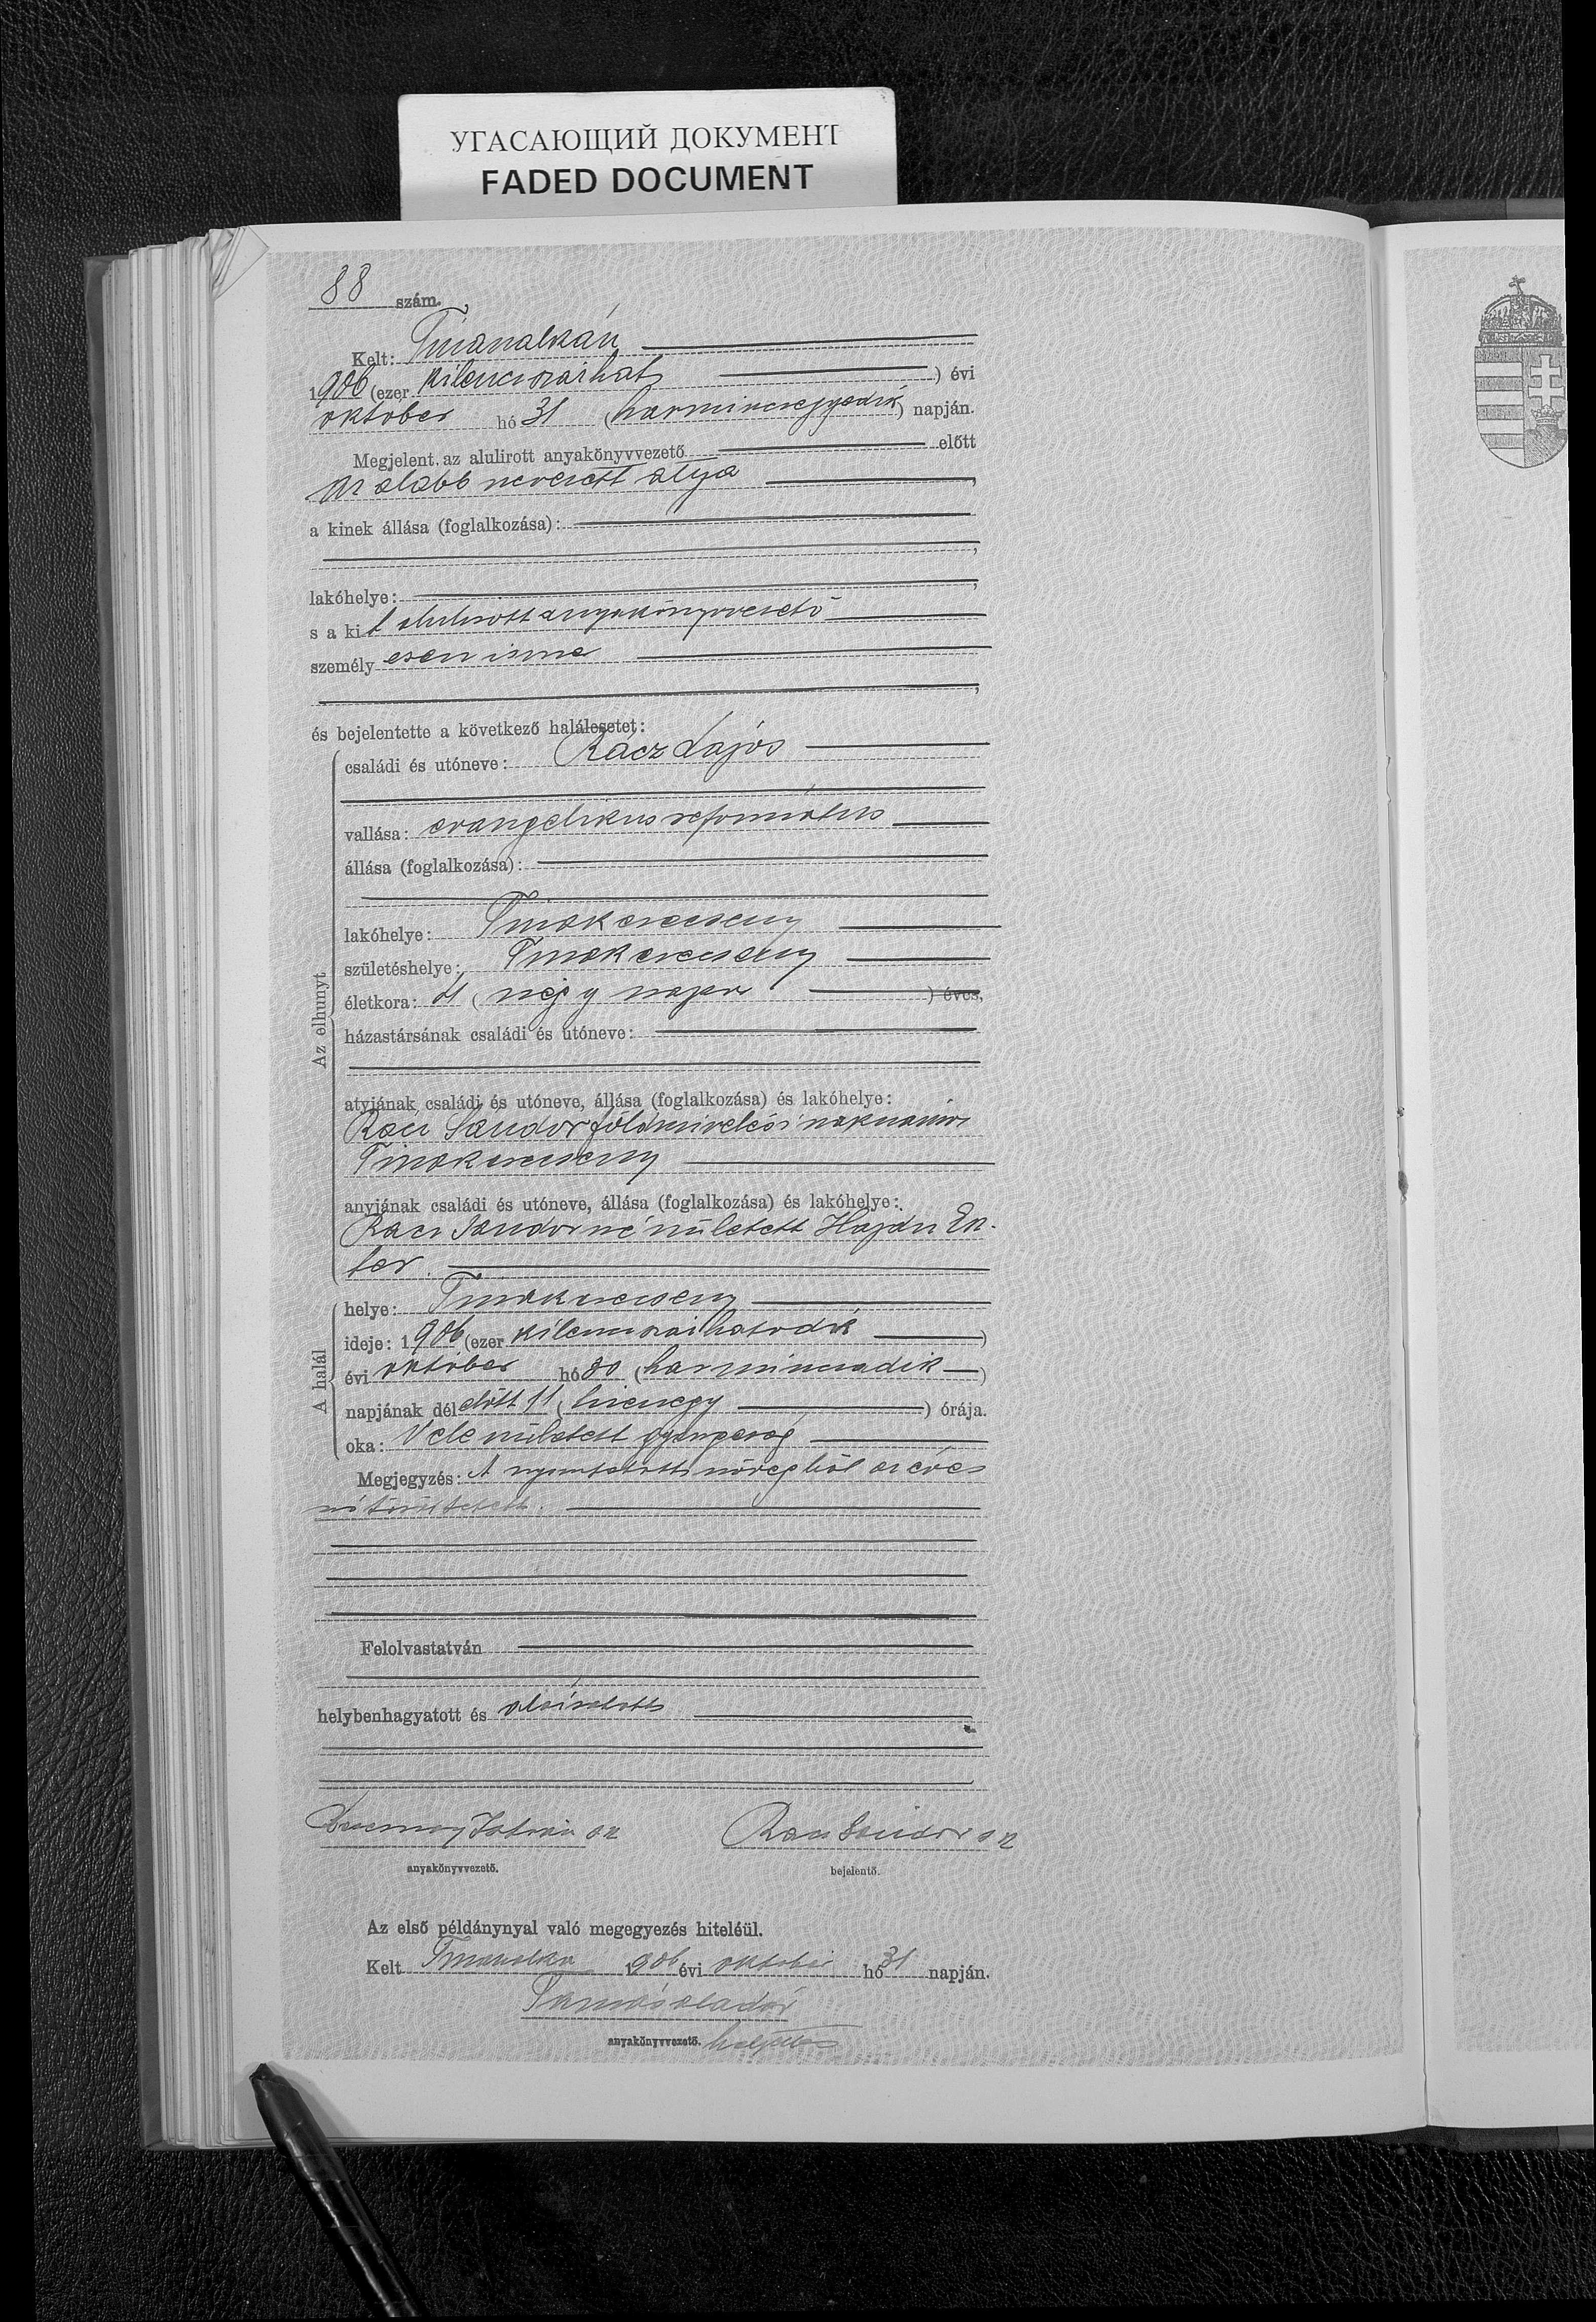 УГАСАЮЩИЙ ДОКУМЕНТ
FADED DOCUMENT
88 szám.
Kelt: Tiszasalkán
1906 (ezer kilenczszázhat) évi
október hó 31 (harminczegyedik) napján.
Megjelent az alulirott anyakönyvvezető előtt
az alább nevezett atya,
a kinek állása (foglalkozása):
lakóhelye:
s a kit alulirott anyakönyvvezető
személyesen ismer
és bejelentette a következő halálesetet:
Az elhunyt
családi és utóneve: Rácz Lajos
vallása: evangelikus református
állása (foglalkozása):
lakóhelye: Tiszakerecseny
születéshelye: Tiszakerecseny
életkora: 4 (négy napos) éves,
házastársának családi és utóneve:
atyjának családi és utóneve, állása (foglalkozása) és lakóhelye:
Rácz Sándor földmivelési
Tiszakerecseny
anyjának családi és utóneve, állása (foglalkozása) és lakóhelye:
Rácz Sándorné született Hajdu Esz-
ter.
A halál
helye: Tiszakerecseny
ideje: 1906 (ezer kilenczszázhatodik)
évi október hó 30 (harminczadik)
napjának délelőtt 11 (tizenegy) órája.
oka: Vele született gyengeség
Megjegyzés: A nyomtatott szövegből az éves
szó töröltetett.
Felolvastatván
helybenhagyatott és aláiratott
István sk
Rácz Sándor sk
anyakönyvvezető.
bejelentő.
Az első példánynyal való megegyezés hiteléül.
Kelt 1906 évi október hó 31 napján.
anyakönyvvezető. helyettes